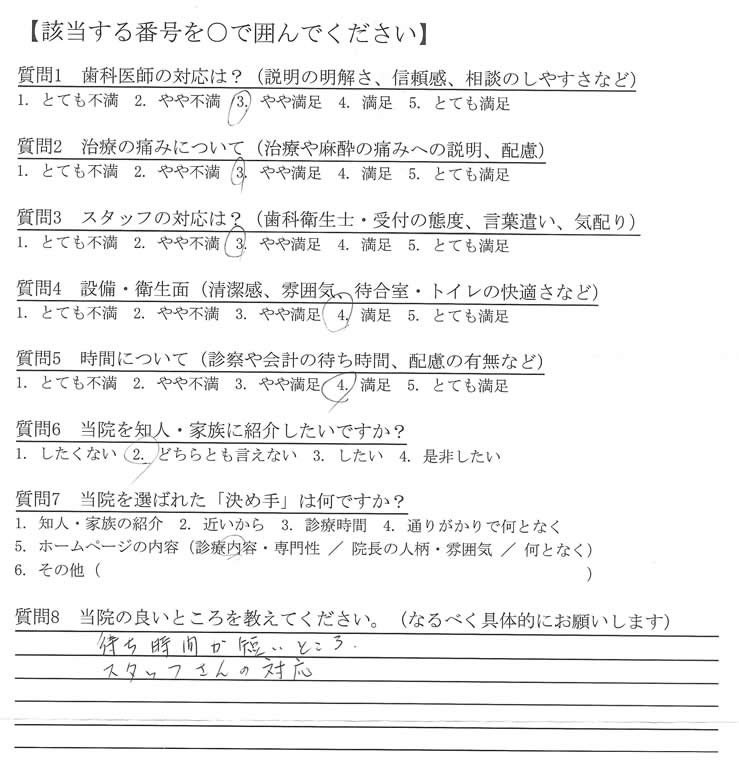 【該当する番号を○で囲んでください】
質問1 歯科医師の対応は？（説明の明解さ、信頼感、相談のしやすさなど）
1. とても不満 2. やや不満 3. やや満足 4. 満足 5. とても満足
質問2 治療の痛みについて（治療や麻酔の痛みへの説明、配慮）
1. とても不満 2. やや不満 3. やや満足 4. 満足 5. とても満足
質問3 スタッフの対応は？（歯科衛生士・受付の態度、言葉遣い、気配り）
1. とても不満 2. やや不満 3. やや満足 4. 満足 5. とても満足
質問4 設備・衛生面（清潔感、雰囲気、待合室・トイレの快適さなど）
1. とても不満 2. やや不満 3. やや満足 4. 満足 5. とても満足
質問5 時間について（診察や会計の待ち時間、配慮の有無など）
1. とても不満 2. やや不満 3. やや満足 4. 満足 5. とても満足
質問6 当院を知人・家族に紹介したいですか？
1. したくない 2. どちらとも言えない 3. したい 4. 是非したい
質問7 当院を選ばれた「決め手」は何ですか？
1. 知人・家族の紹介 2. 近いから 3. 診療時間 4. 通りがかりで何となく
5. ホームページの内容（診療内容・専門性 ／ 院長の人柄・雰囲気 ／ 何となく）
6. その他（ ）
質問8 当院の良いところを教えてください。（なるべく具体的にお願いします）
待ち時間が短いところ.
スタッフさんの対応